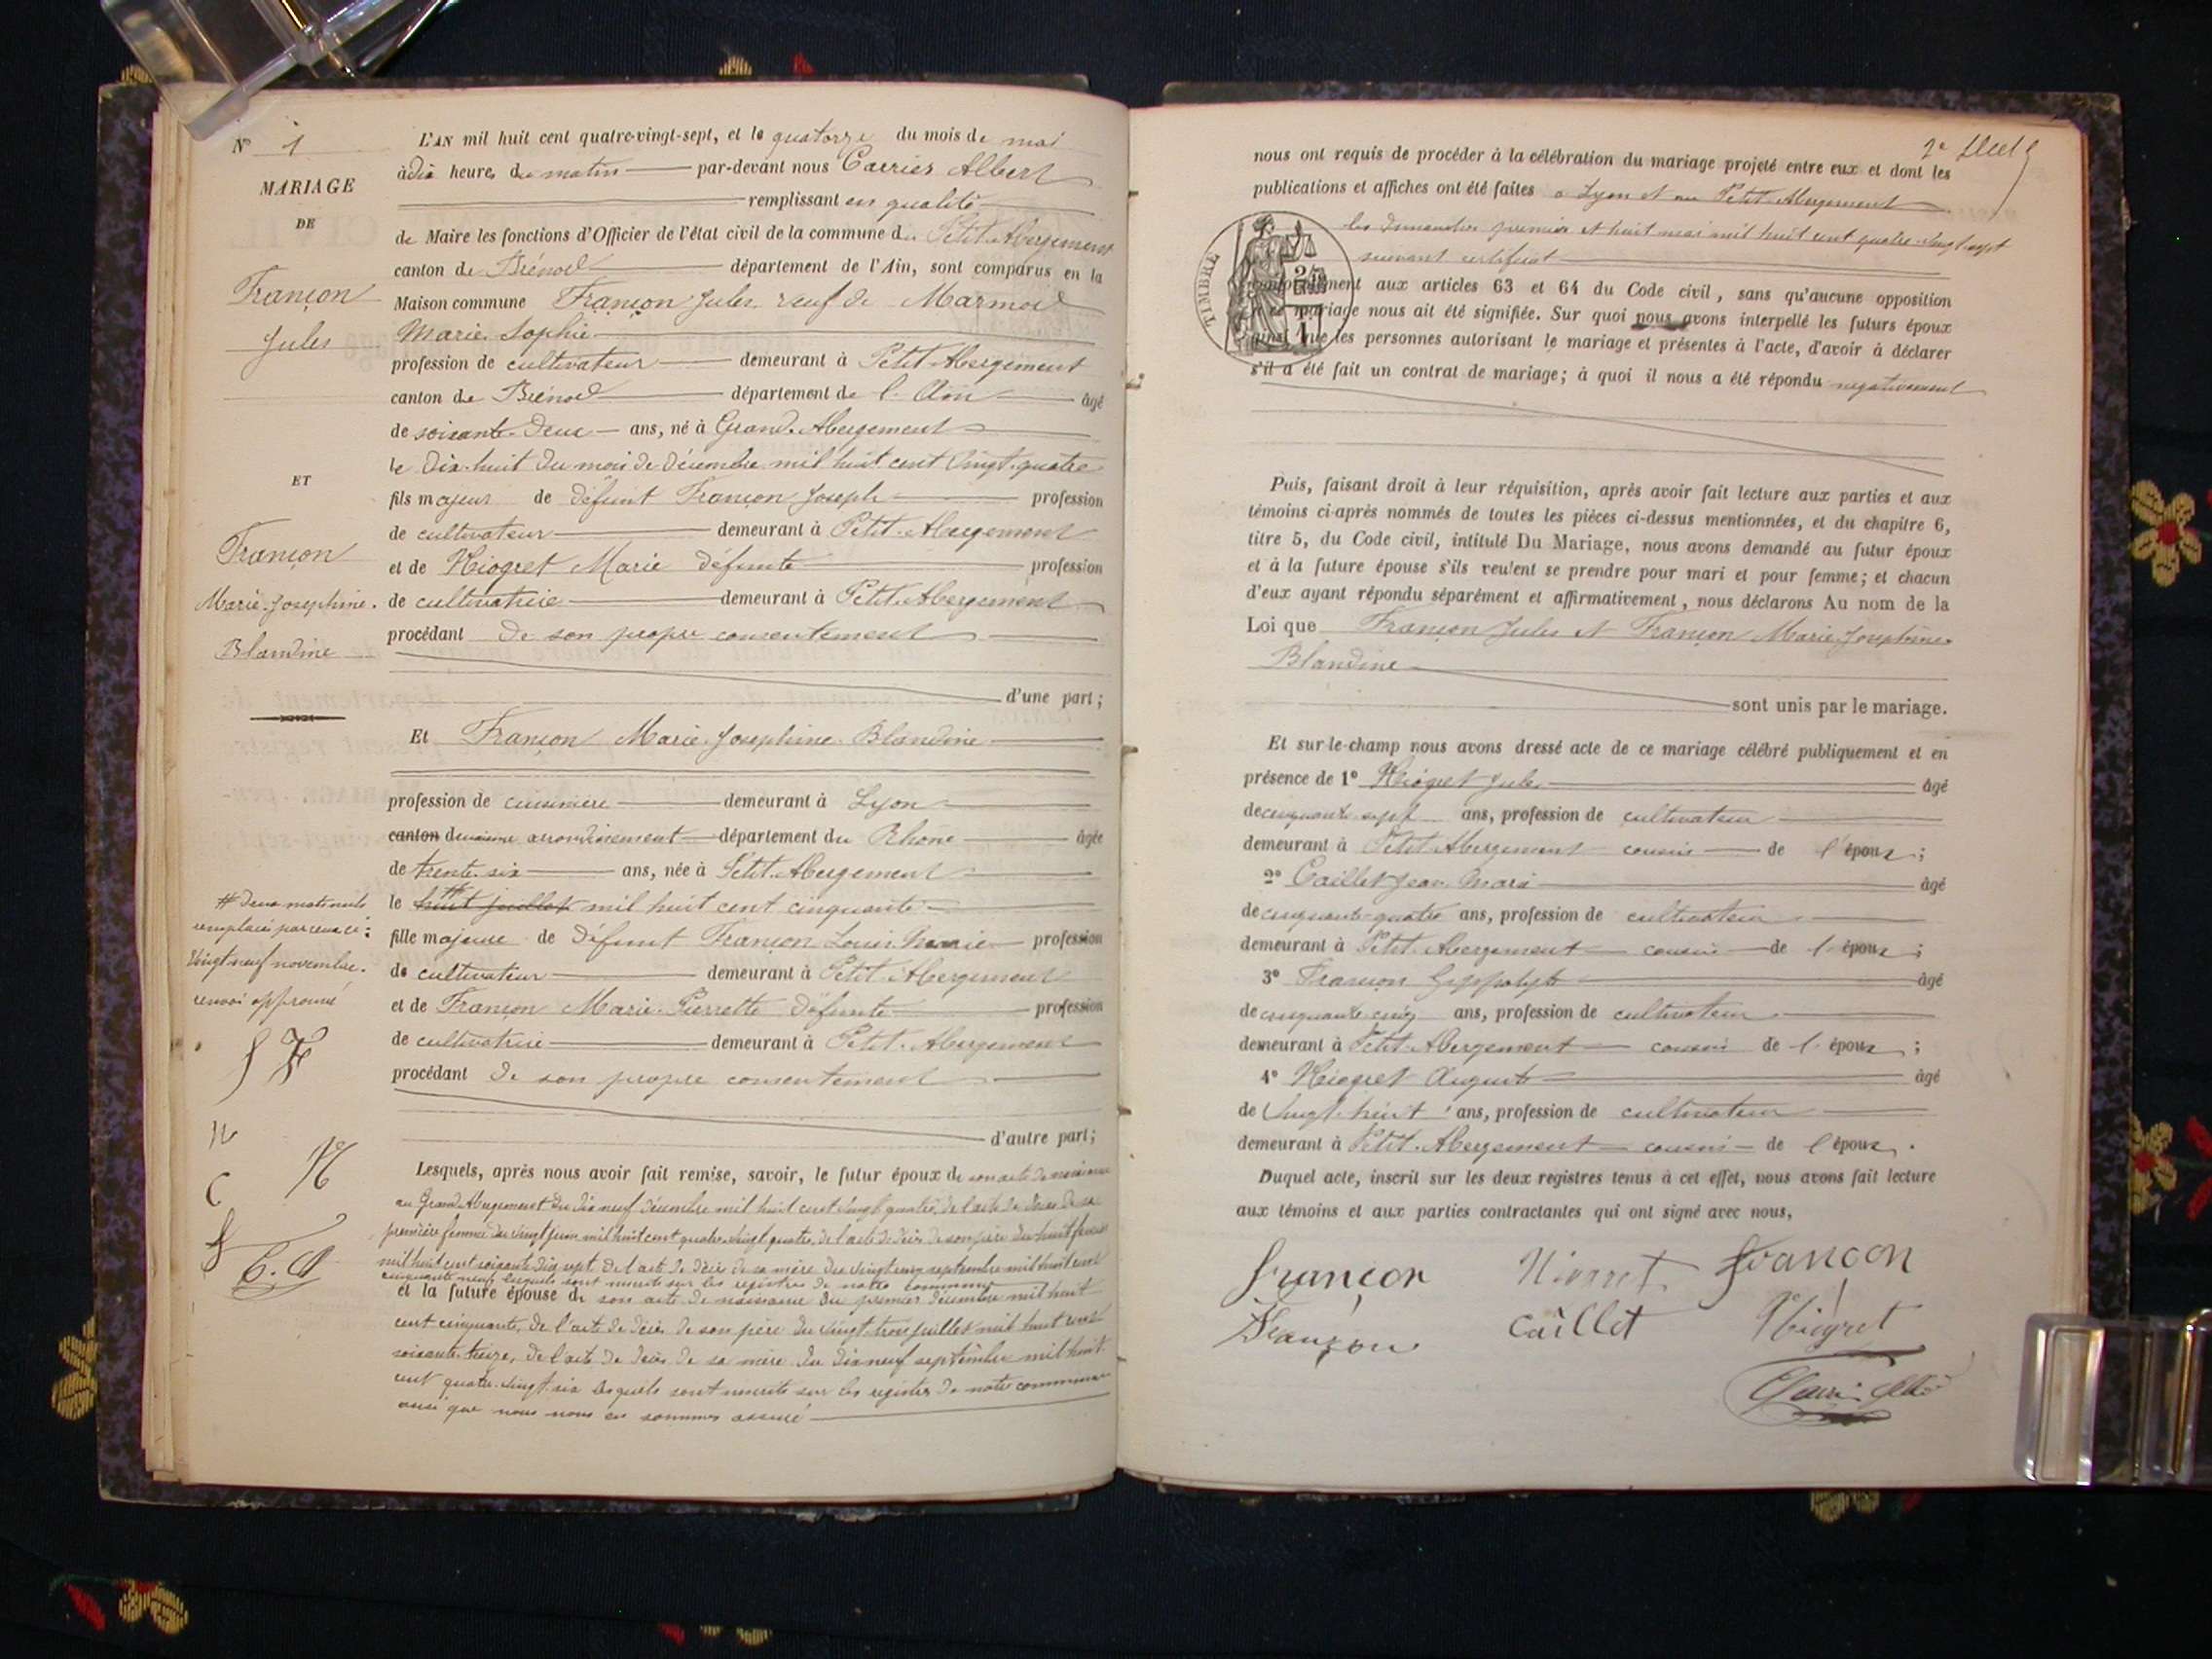 N° 1
MARIAGE
DE
Françon
Jules
ET
Françon
Marie Joséphine
Blandine
# Deux mots nuls
remplacés par ceux ci :
Vingt neuf novembre.
renvoi approuvé
J F
N
C
H
f
C. A
L'AN mil huit cent quatre-vingt-sept, et le quatorze du mois de mai
à dix heures du matin par-devant nous Carrier Albert
remplissant en qualité
de Maire les fonctions d'Officier de l'état civil de la commune du Petit Abergement
canton de Brénod département de l'Ain, sont comparus en la
Maison commune Françon Jules veuf de Marmod
Marie Sophie
profession de cultivateur demeurant à Petit Abergement
canton de Brénod département de l'Ain âgé
de soixante deux ans, né à Grand Abergement
le Dix-huit du mois de décembre mil huit cent vingt-quatre
fils majeur de défunt Françon Joseph profession
de cultivateur demeurant à Petit Abergement
et de Hiogret Marie défunte profession
de cultivatrice demeurant à Petit Abergement
procédant de son propre consentement
d'une part ;
Et Françon Marie Joséphine Blandine
profession de cuisinière demeurant à Lyon
canton deuxième arrondissement département du Rhône âgée
de trente-six ans, née à Petit Abergement
le # huit juillet mil huit cent cinquante
fille majeure de défunt Françon Louis Marie profession
de cultivateur demeurant à Petit Abergement
et de Françon Marie Pierrette défunte profession
de cultivatrice demeurant à Petit Abergement
procédant de son propre consentement
d'autre part ;
Lesquels, après nous avoir fait remise, savoir, le futur époux de son acte de naissance
au Grand Abergement du dix neuf décembre mil huit cent vingt quatre, de l'acte de décès de sa
première femme du vingt juin mil huit cent quatre-vingt quatre, de l'acte de décès de son père du huit
mil huit cent soixante dix sept, de l'acte de décès de sa mère du vingt cinq septembre mil huit cent
cinquante neuf lesquels sont inscrits sur les registres de notre commune
et la future épouse de son acte de naissance du premier décembre mil huit
cent cinquante, de l'acte de décès de son père du vingt trois juillet mil huit cent
soixante treize, de l'acte de décès de sa mère du dix neuf septembre mil huit
cent quatre-vingt-six lesquels sont inscrits sur les registres de notre commune
ainsi que nous nous en sommes assuré
nous ont requis de procéder à la célébration du mariage projeté entre eux et dont les
publications et affiches ont été faites à Lyon et au Petit Abergement
les dimanches premier et huit mai mil huit cent quatre-vingt sept
suivant certificat
TIMBRE
conformément aux articles 63 et 64 du Code civil, sans qu'aucune opposition
à ce mariage nous ait été signifiée. Sur quoi nous avons interpellé les futurs époux
ainsi que les personnes autorisant le mariage et présentes à l'acte, d'avoir à déclarer
s'il a été fait un contrat de mariage ; à quoi il nous a été répondu négativement
Puis, faisant droit à leur réquisition, après avoir fait lecture aux parties et aux
témoins ci-après nommés de toutes les pièces ci-dessus mentionnées, et du chapitre 6,
titre 5, du Code civil, intitulé Du Mariage, nous avons demandé au futur époux
et à la future épouse s'ils veulent se prendre pour mari et pour femme ; et chacun
d'eux ayant répondu séparément et affirmativement, nous déclarons Au nom de la
Loi que Françon Jules et Françon Marie Joséphine
Blandine
sont unis par le mariage.
Et sur-le-champ nous avons dressé acte de ce mariage célébré publiquement et en
présence de 1° Hiogret Jules âgé
de cinquante sept ans, profession de cultivateur
demeurant à Petit Abergement cousin de l'époux ;
2° Caillet Jean Marie âgé
de cinquante-quatre ans, profession de cultivateur
demeurant à Petit Abergement cousin de l'époux ;
3° Françon Hyppolyte âgé
de cinquante cinq ans, profession de cultivateur
demeurant à Petit Abergement cousin de l'époux ;
4° Hiogret Auguste âgé
de vingt-huit ans, profession de cultivateur
demeurant à Petit Abergement cousin de l'époux.
Duquel acte, inscrit sur les deux registres tenus à cet effet, nous avons fait lecture
aux témoins et aux parties contractantes qui ont signé avec nous,
françon Hiogret françon
Françon Caillet Hiogret